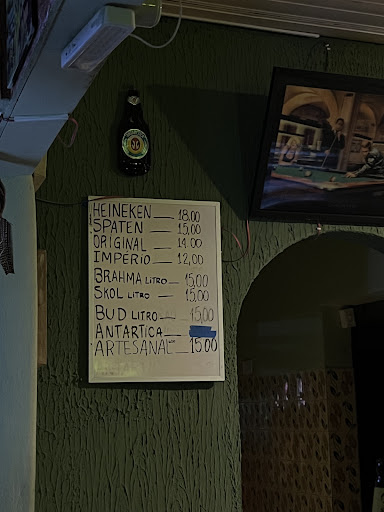 HEINEKEN __ 18,00
SPATEN __ 15,00
ORIGINAL __ 14,00
IMPÉRIO __ 12,00
BRAHMA LITRO __ 15,00
SKOL LITRO __ 15,00
BUD LITRO __ 15,00
ANTARTICA __
ARTESANAL __ 15,00